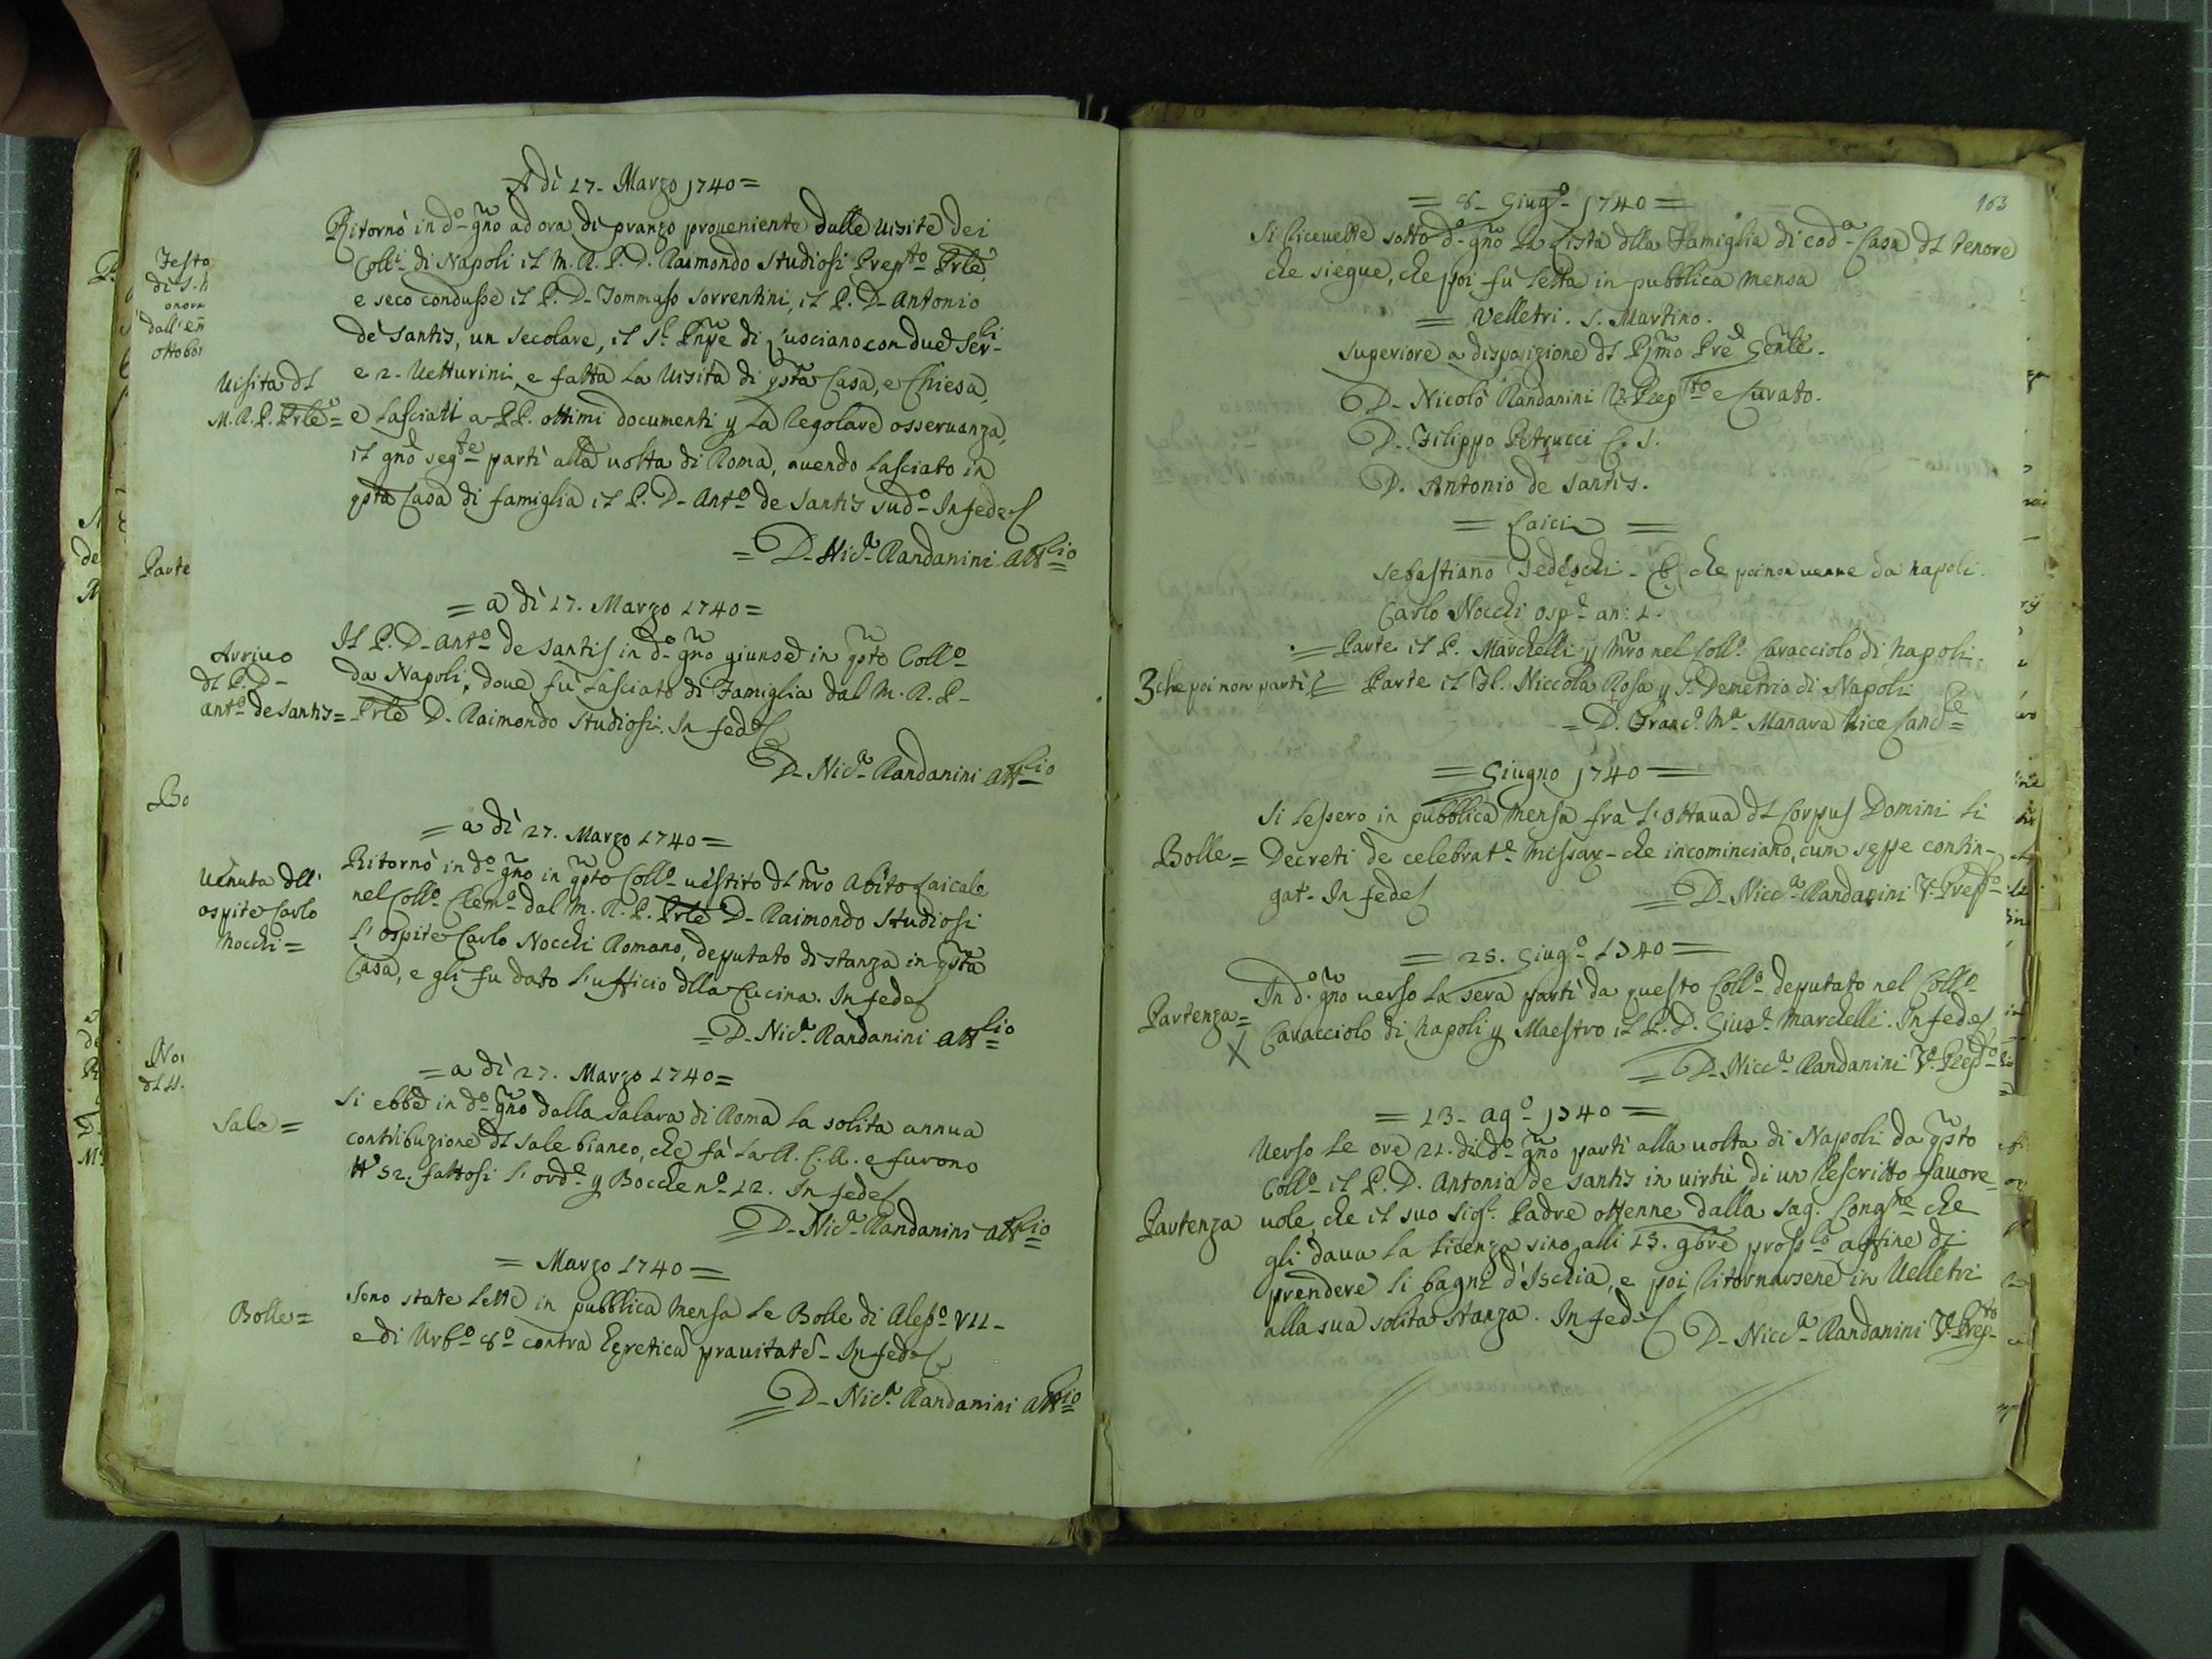 A dì 17. Marzo 1740=
Ritornò in d.o gno ad ora di pranzo proueniente dalle uisite dei
Coll.i di Napoli il M. R. P. D. Raimondo Studiosi Prep.to Prle,
e seco condusse il P. D. Tommaso Sorrentini, il P. D. Antonio
de Santis, un secolare, il S.r Pnpe di Lusciano con due Ser.ri
Uisita dl
e 2. Uetturini, e fatta la Uisita di qsta Casa, e Chiesa,
M. R. P. Prle=
e lasciati a PP. ottimi documenti p la regolare osseruanza,
il gno seg.te partì alla uolta di Roma, auendo lasciato in
qsta Casa di famiglia il P. D. Ant.o de Santis sud.o In fede
= D. Nic.a Randanini Att.rio
= a dì 17. Marzo 1740=
Il P. D. Ant.o de Santis in d.o gno giunse in qsto Coll.o
Arriuo
dl P. D.
da Napoli, doue fù lasciato di Famiglia dal M. R. P.
ant.o de Santis=
Prle D. Raimondo Studiosi. In fede
D. Nic.a Randanini Att.rio
= a dì 27. Marzo 1740=
Uenuta dll'
ospite Carlo
Nocchi=
Ritornò in d.o gno in qsto Coll.o uestito dl nro Abito laicale
nel Coll.o Clem.o dal M. R. P. Prle D. Raimondo Studiosi
l'ospite Carlo Nocchi Romano, deputato di stanza in qsta
Casa, e gli fu dato l'ufficio dlla Cucina. In fede
= D. Nic.a Randanini Att.rio
= a dì 27. Marzo 1740=
Sale=
Si ebbe in d.o gno dalla Salara di Roma la solita annua
contribuzione dl sale bianco, che fà la R. C. A. e furono
52. fattosi l'ord.e p Bocche n.o 12. In fede
D. Nic.a Randanini Att.rio
= Marzo 1740=
Bolle=
Sono state lette in pubblica Mensa le Bolle di Aless.o VII.
e di Urb.o 8.o contra Egretica prauitate. In fede
D. Nic.a Randanini Att.rio
163
= 8. Giug.o 1740=
Si riceuette sotto d.o gno la lista dlla Famiglia di cod.a Casa dl tenore
che siegue, che poi fu letta in pubblica mensa
= Velletri. S. Martino.
Superiore a disposizione dl Rmo Pre Gnle.
D. Nicolò Randanini V. Prep.to e Curato.
D. Filippo Petrucci C. S.
D. Antonio de Santis.
= Laici =
Sebastiano Tedeschi. che poi non uenne da Napoli.
Carlo Nocchi osp.e an: 1.
= Parte il P. Marchelli p Mro nel Coll.o Caracciolo di Napoli.
che poi non partì = Parte il Fl. Niccola Rosa p S. Demetrio di Napoli
= D. Franc.o M.a Manara Uice Canc.re
= Giugno 1740=
Si lessero in pubblica Mensa frà l'ottaua dl Corpus Domini li
Bolle=
Decreti de celebrat.e Missar. che incominciano, cum sepe contin-
gat. In fede
= D. Nicc.a Randanini V. Prep.to
= 25. Giug.o 1740=
Partenza=
In d.o gno uerso la sera partì da questo Coll.o deputato nel Coll.o
Caracciolo di Napoli p Maestro il P. D. Gius.e Marchelli. In fede
X
= D. Nicc.a Randanini V. Prep.to
= 13. Ag.o 1740=
Uerso le ore 21. di d.o gno partì alla uolta di Napoli da qsto
Coll.o il P. D. Antonio de Santis in uirtù di un rescritto fauore-
Partenza
uole che il suo Sig.r Padre ottenne dalla Sag. Cong.ne che
gli daua la licenza sino alli 15. 9bre pross.o affine di
prendere li bagni d'Ischia, e poi ritornarsene in Uelletri
alla sua solita stanza. In fede
D. Nicc.a Randanini V. Prep.to